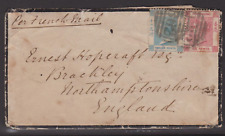 Per French Mail
Ernest Hopcraft Esq
Brackley
Northamptonshire
England